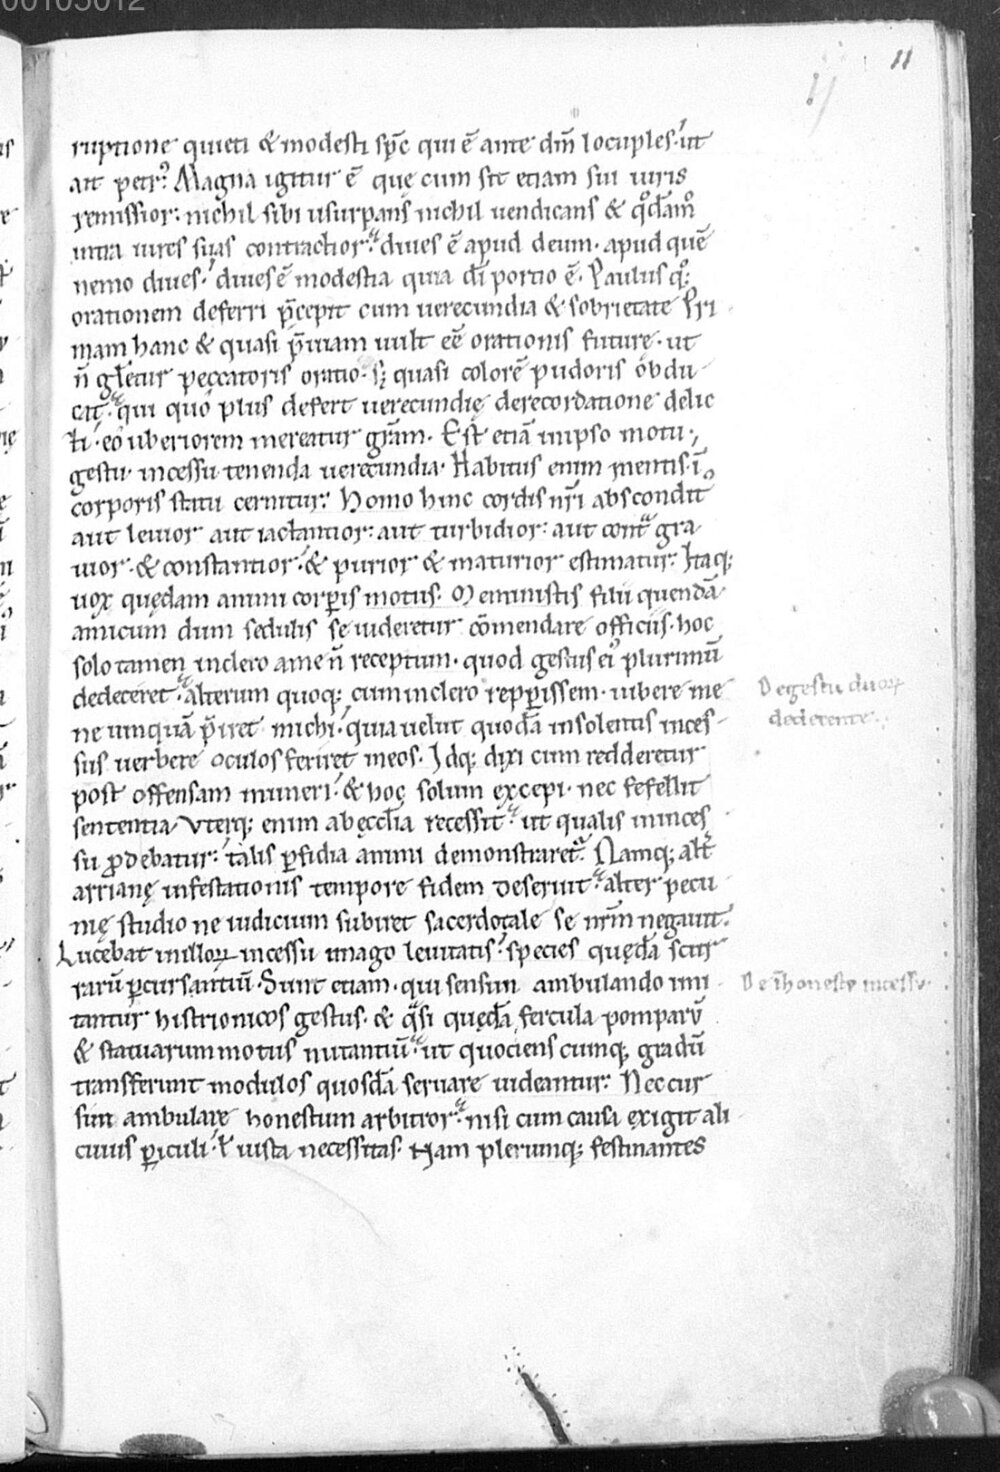 00105012
11
ij
ruptione quieti & modesti sp̄c qui ē ante dm̄ locuples· ut
ait petr᷒ Magna igitur ē que cum sit etiam sui iuris
remissior: nichil sibi usurpans nichil uendicans & qͦdāmͦ
intra uires suas contractior: diues ē apud deum· apud quē
nemo diues· diues ē modestia quia dī portio ē· Paulus qͦꝫ
orationem deferri p̄cepit cum uerecundia & sobrietate Pri
mam hanc & quasi p̄uiam uult eē orationis futurę· ut
n̄ gl̄etur peccatoris oratio· sꝫ quasi colorē pudoris obdu
cat· qui quo plus defert uerecundię de recordatione delic
ti· eo uberiorem mereatur gr̄am· Est etiā in ipso motu·
gestu· incessu tenenda uerecundia· Habitus enim mentis ī
corporis statu cernitur: Homo hinc cordis nr̄i abscondit᷒
aut leuior aut iactantior: aut turbidior: aut cont̄ gra
uior· & constantior· & purior & maturior estimatur: Itaqꝫ
uox quędam animi corꝑis motus· Meministis filii quendā
amicum dum sedulis se uideretur cōmendare officiis· hoc
solo tamen in clero a me n̄ receptum· quod gestus ei᷒ plurimū
dedeceret· alterum quoqꝫ cum in clero repperissem· iubere me
ne umquā p̄iret michi· quia uelut quodā insolentis inces
sus uerbere oculos feriret meos· Idqꝫ dixi cum redderetur
post offensam muneri· & hoc solum excepi· nec fefellit
sententia Vterqꝫ enim ab ęccl̄ia recessit· ut qualis inces
su ꝓdebatur: talis ꝑfidia animi demonstraret᷑· Namqꝫ alt̄
arrianę infestationis tempore fidem deseruit· alter pecu
nię studio ne iudicium subiret sacerdotale se nr̄m negauit:
Lucebat in illoꝝ incessu imago leuitatis: species quędā scur
rarū ꝑcursantiū· Sunt etiam· qui sensim ambulando imi
tantur histrionicos gestus· & qͣsi quędā fercula pomparū
& statuarum motus nutantiū· ut quociens cumqꝫ gradū
transferunt modulos quosdā seruare uideantur: Nec cur
sim ambulare honestum arbitror: nisi cum causa exigit ali
cuius ꝑiculi· ł iusta necessitas· Nam plerumqꝫ festinantes
De gestu duoꝝ
dedecente·
De īhonesto incessu·